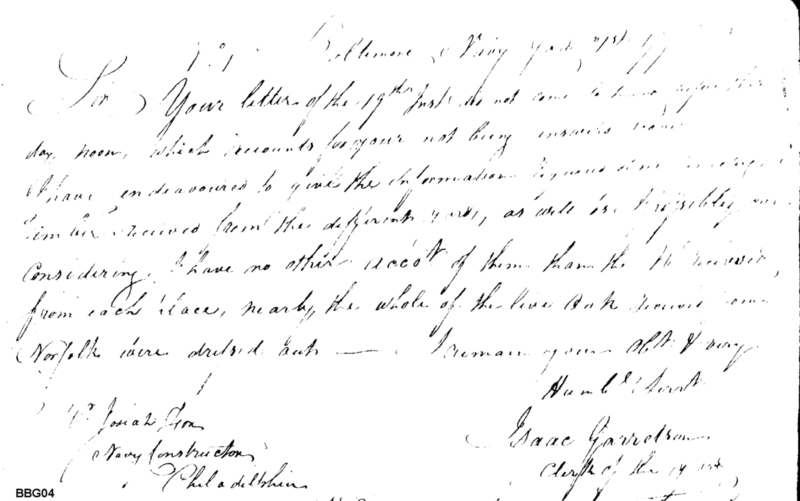 Baltimore Navy Yard
Sir Your letter of the 19th Inst. did not come to hand
day noon, which accounts for your not being answered
I have endeavoured to give the Information
Timber received from the different yards, as well as I possibly
considering I have no other accot of them than the No received
from each place, nearly, the whole of the live Oak received from
Norfolk were defected such — I remain your Obt & very
Humbe Servt
Josiah Fox
Navy Constructor
Philadelphia
Isaac Garretson
Clerk of the yard
BBG04